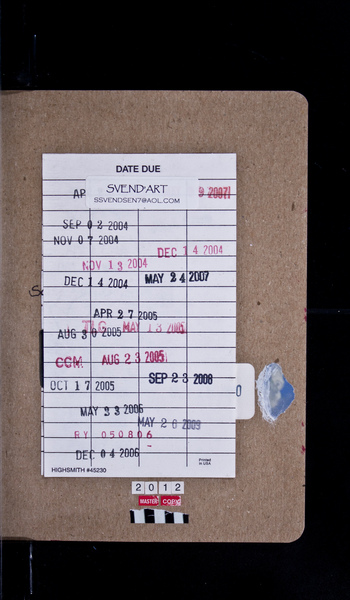 DATE DUE
AP
SVEND'ART
SSVENDSEN7@AOL.COM
9 2007
SEP 02 2004
NOV 07 2004
DEC 14 2004
NOV 13 2004
DEC 14 2004
MAY 24 2007
APR 27 2005
TLC MAY 13
AUG 30 2005
CGM AUG 23 2005
SEP 23 2008
OCT 17 2005
MAY 23 2006
MAY 26 2009
BY 050806
DEC 04 2006
HIGHSMITH #45230
Printed
in USA
2012
MASTER COPIC